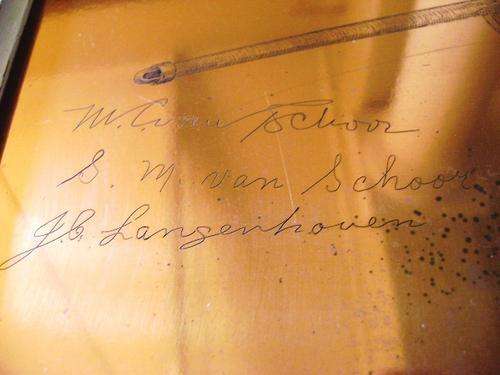 M. C. van Schoor
S. M. van Schoor
J. C. Langenhoven